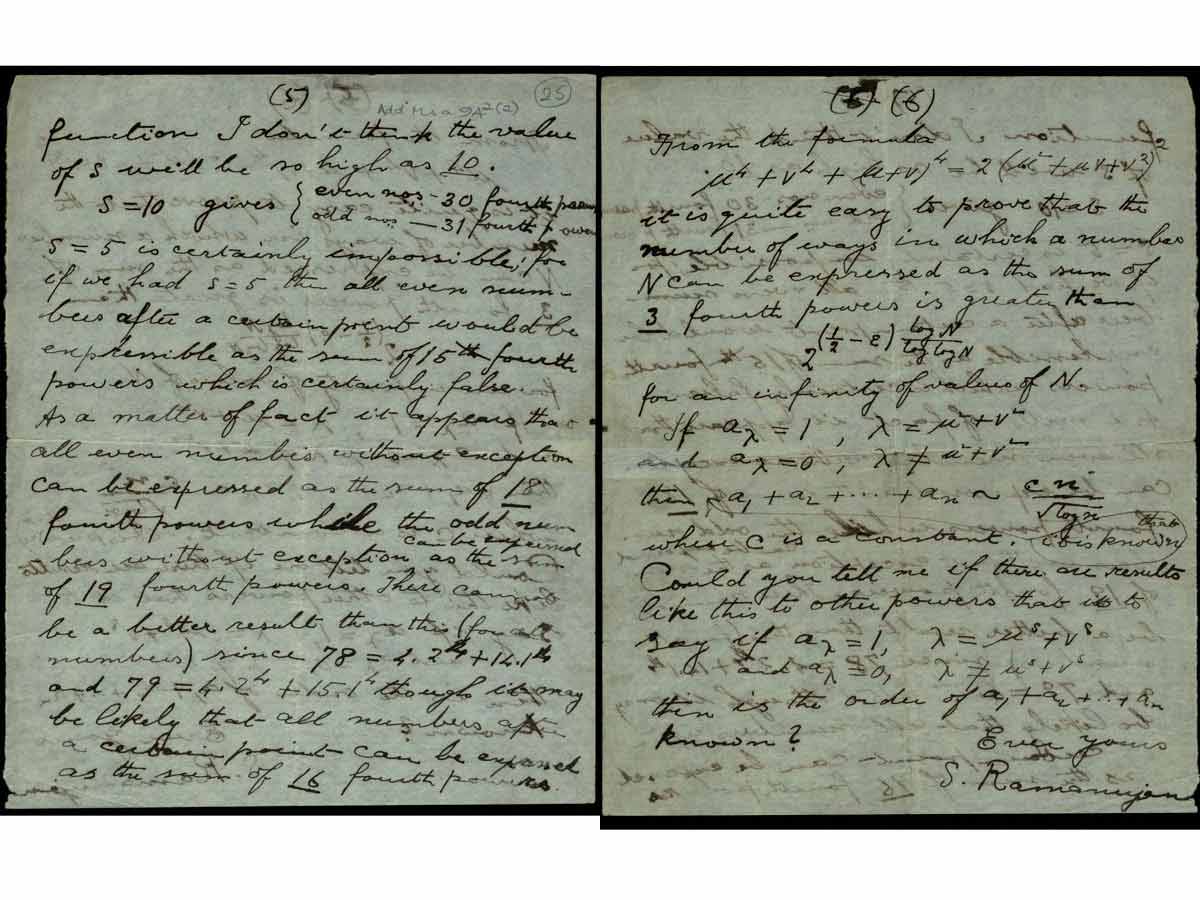 (5)
25
Add Ms a 94² (2)
function I don't think the value
of S will be so high as 10.
S = 10 gives { even nos. – 30 fourth powers
odd nos – 31 fourth powers
S = 5 is certainly impossible; for
if we had s = 5 then all even num-
bers after a certain point would be
expressible as the sum of 15 fourth
powers which is certainly false.
As a matter of fact it appears that
all even numbers without exception
can be expressed as the sum of 18
fourth powers while the odd num
bers without exception can be expressed as the sum
of 19 fourth powers. There cannot
be a better result than this (for all
numbers) since 78 = 4.2⁴ + 14.1⁴
and 79 = 4.2⁴ + 15.1⁴ though it may
be likely that all numbers after
a certain point can be expressed
as the sum of 16 fourth powers.
(6)
From the formula
μ⁴ + ν⁴ + (μ+ν)⁴ = 2 (μ² + μν + ν²)²
it is quite easy to prove that the
number of ways in which a number
N can be expressed as the sum of
3 fourth powers is greater than
2^{(1/2 – ε) log N / log log N}
for an infinity of values of N.
If a_λ = 1, λ = μ² + ν²
and a_λ = 0, λ ≠ μ² + ν²
then a₁ + a₂ + ··· + aₙ ~ c n / √log n
where c is a constant. (that is known)
Could you tell me if there are results
like this to other powers that is to
say if a_λ = 1, λ = μˢ + νˢ
and a_λ = 0, λ ≠ μˢ + νˢ
then is the order of a₁ + a₂ + ·· + aₙ
known?
Ever yours
S. Ramanujan